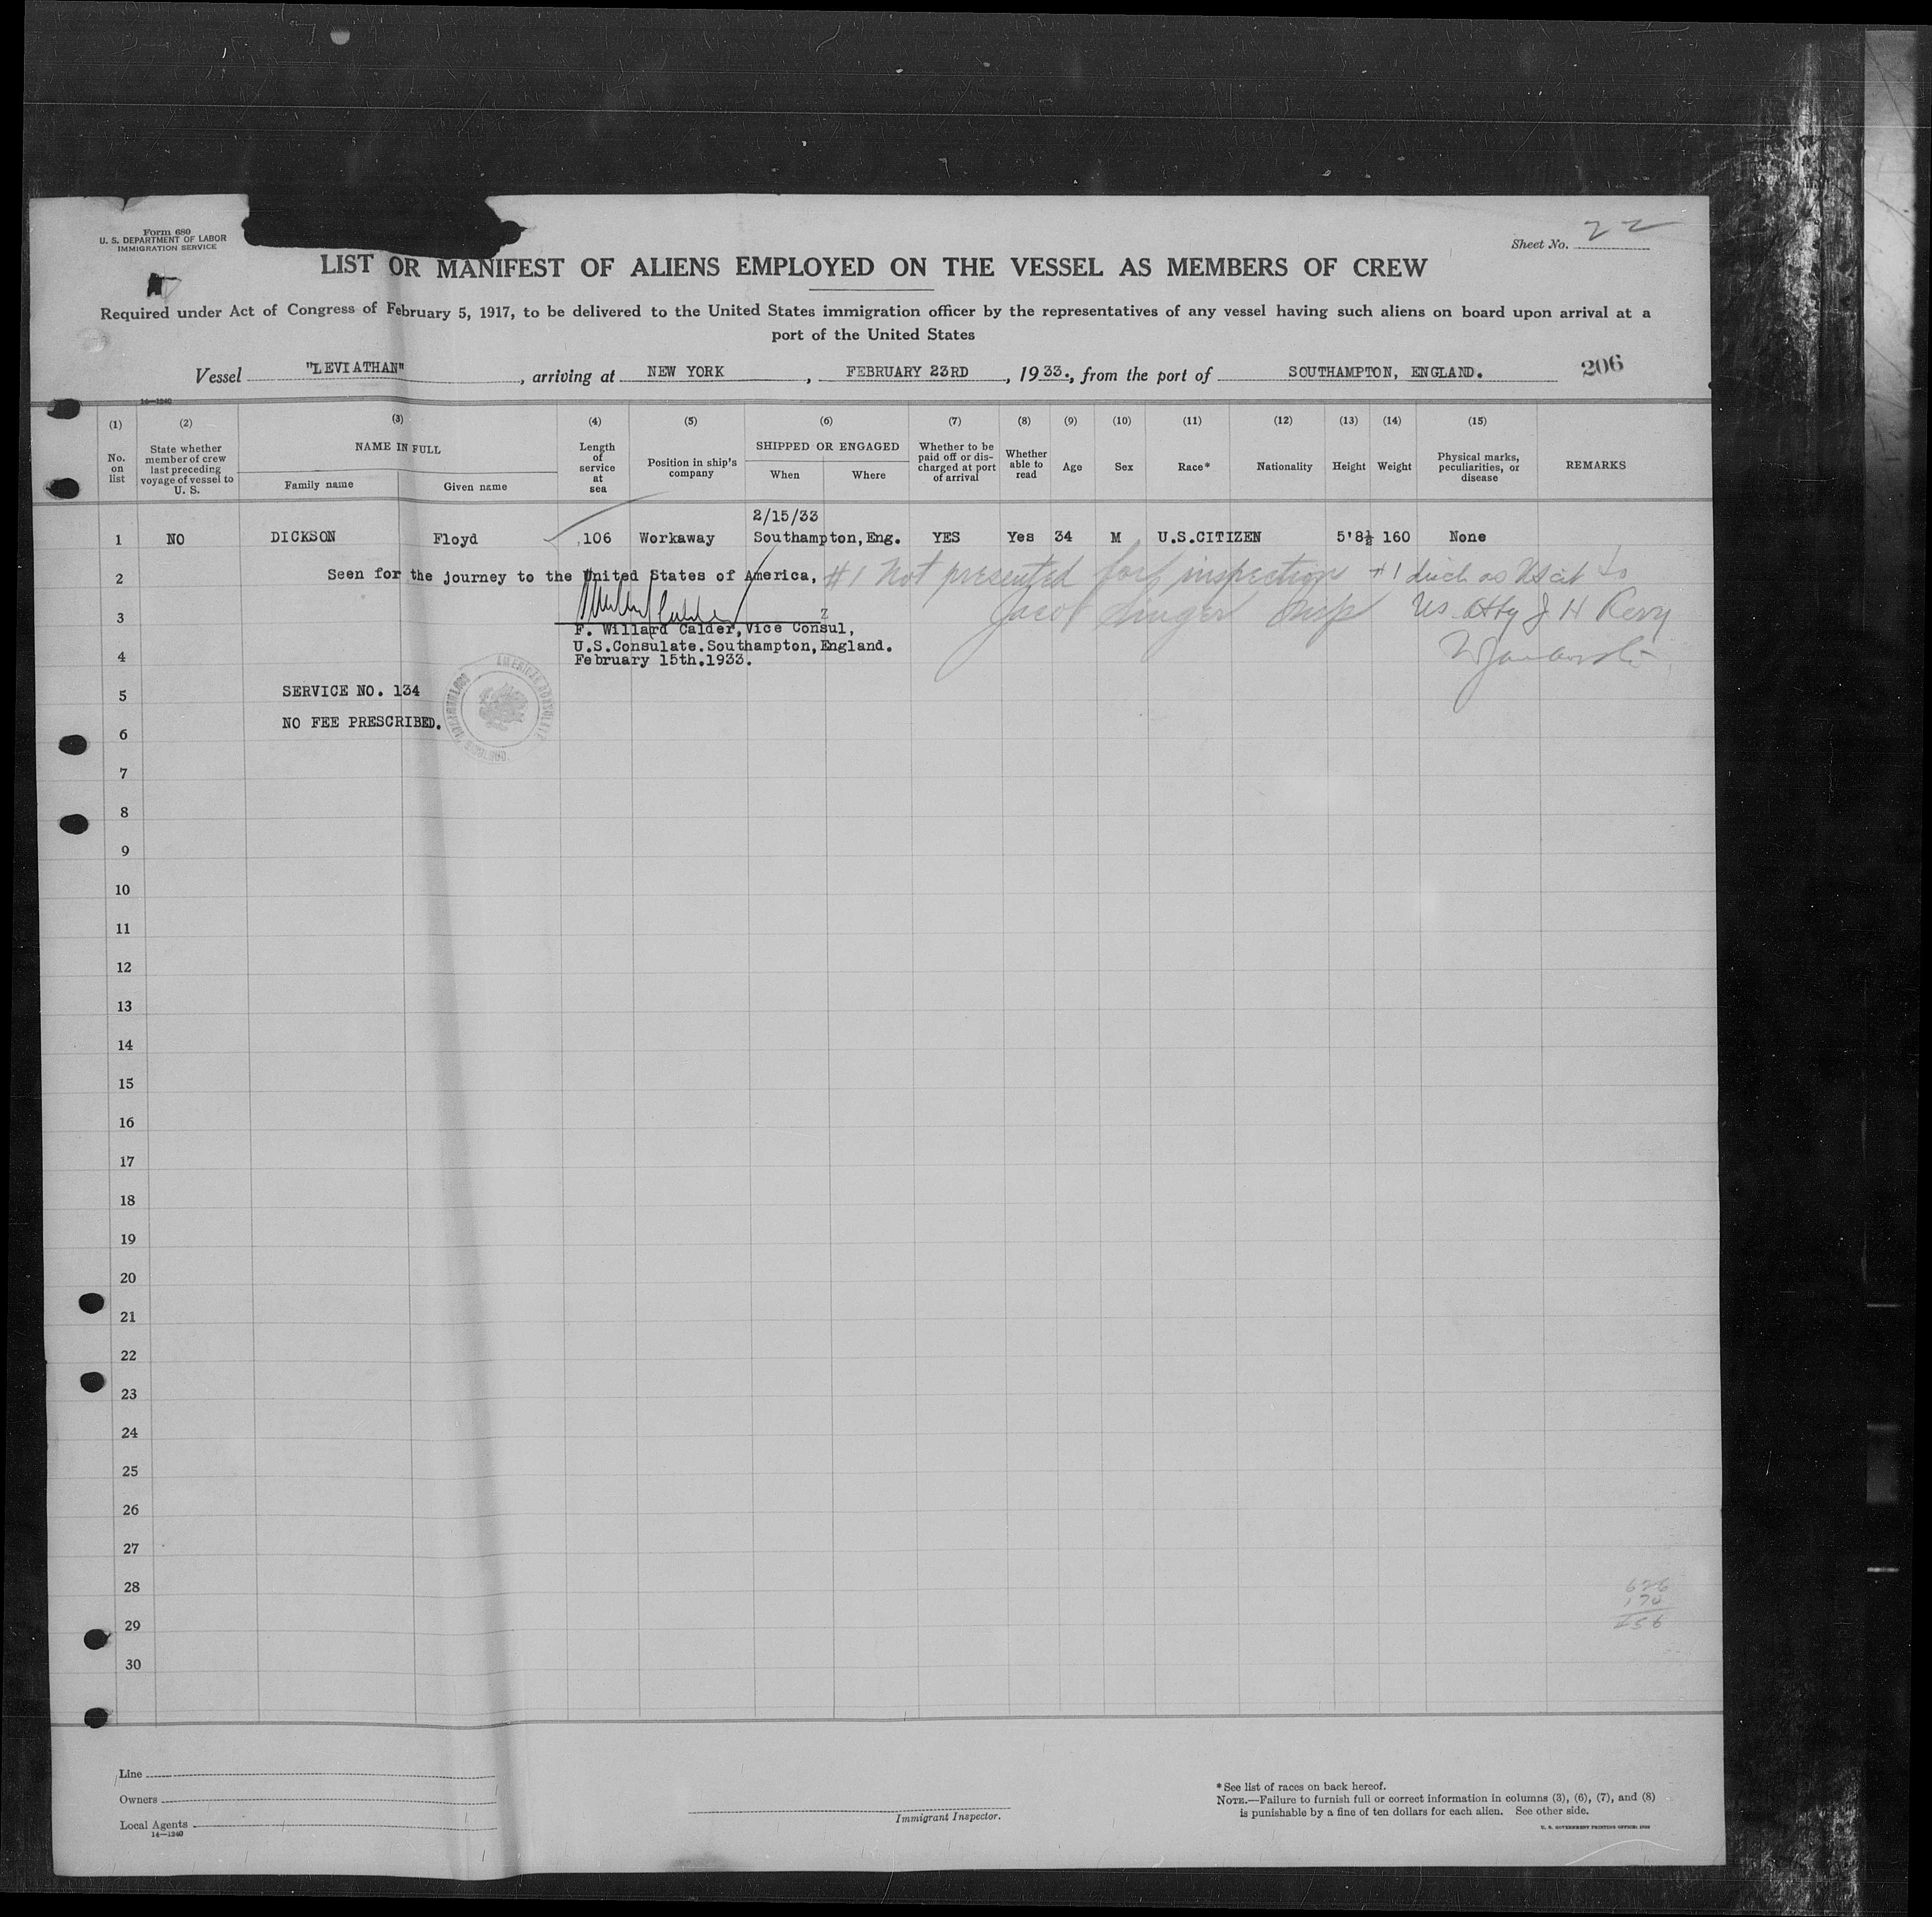 Form 680
U. S. DEPARTMENT OF LABOR
IMMIGRATION SERVICE
Sheet No. 22
LIST OR MANIFEST OF ALIENS EMPLOYED ON THE VESSEL AS MEMBERS OF CREW
Required under Act of Congress of February 5, 1917, to be delivered to the United States immigration officer by the representatives of any vessel having such aliens on board upon arrival at a
port of the United States
Vessel "LEVIATHAN", arriving at NEW YORK, FEBRUARY 23RD, 1933., from the port of SOUTHAMPTON, ENGLAND. 206
14—1240
(1) (2) (3) (4) (5) (6) (7) (8) (9) (10) (11) (12) (13) (14) (15)
No. on list
State whether member of crew last preceding voyage of vessel to U. S.
NAME IN FULL
Family name
Given name
Length of service at sea
Position in ship's company
SHIPPED OR ENGAGED
When
Where
Whether to be paid off or discharged at port of arrival
Whether able to read
Age
Sex
Race*
Nationality
Height
Weight
Physical marks, peculiarities, or disease
REMARKS
2/15/33
1 NO DICKSON Floyd 106 Workaway Southampton, Eng. YES Yes 34 M U.S.CITIZEN 5'8½ 160 None
2 Seen for the journey to the United States of America, #1 Not presented for inspection #1 as US cit to
3 Jacob Singer Insp US Atty J H
F. Willard Calder, Vice Consul,
U.S.Consulate.Southampton,England.
4 February 15th.1933.
AMERICAN CONSULATE SOUTHAMPTON, ENGLAND
5 SERVICE NO. 134
NO FEE PRESCRIBED.
6
7
8
9
10
11
12
13
14
15
16
17
18
19
20
21
22
23
24
25
26
27
28
29
30
626
170
456
Line
Owners
Local Agents
14—1240
Immigrant Inspector.
*See list of races on back hereof.
NOTE.—Failure to furnish full or correct information in columns (3), (6), (7), and (8)
is punishable by a fine of ten dollars for each alien. See other side.